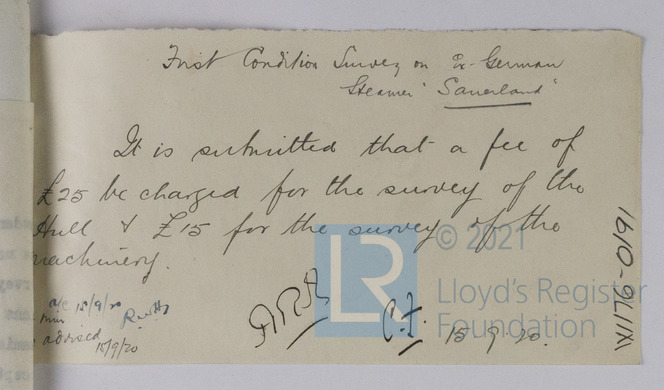 First Condition Survey on Ex-German
Steamer "Sauerland"
It is submitted that a fee of
£25 be charged for the survey of the
Hull & £15 for the survey of the
machinery.
a/c 15/9/20
advised
15/9/20
15 9 20.
W1176-0191
© 2021
LR
Lloyd's Register
Foundation